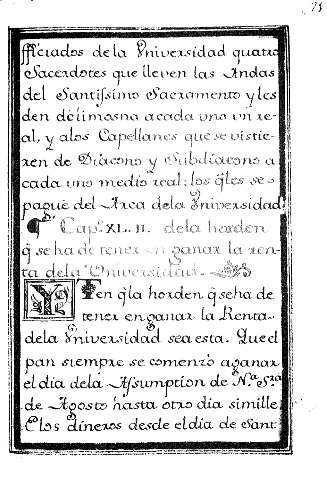 ff̃eciados de la Vniversidad quatro
Sacerdotes que lleven las Andas
del Santissimo Sacramento y les
den delimosna acada uno vn re-
al, y alos Capellanes que se vistie-
ren de Diacono y Subdiacono a
cada uno medio real; los q̃les se
pague del Arca dela Vniversidad
Capo. XL. II. dela horden
q̃ se ha de tener en ganar la ren-
ta dela Vniversidad.
Y Ten q̃ la horden q̃ se ha de
tener en ganar la Renta
dela Vniversidad sea esta. Que el
pan siempre se comenzo a ganar
el dia dela Assumption de Na. Sra.
de Agosto hasta otro dia simille
E los dineros desde el dia de Sant